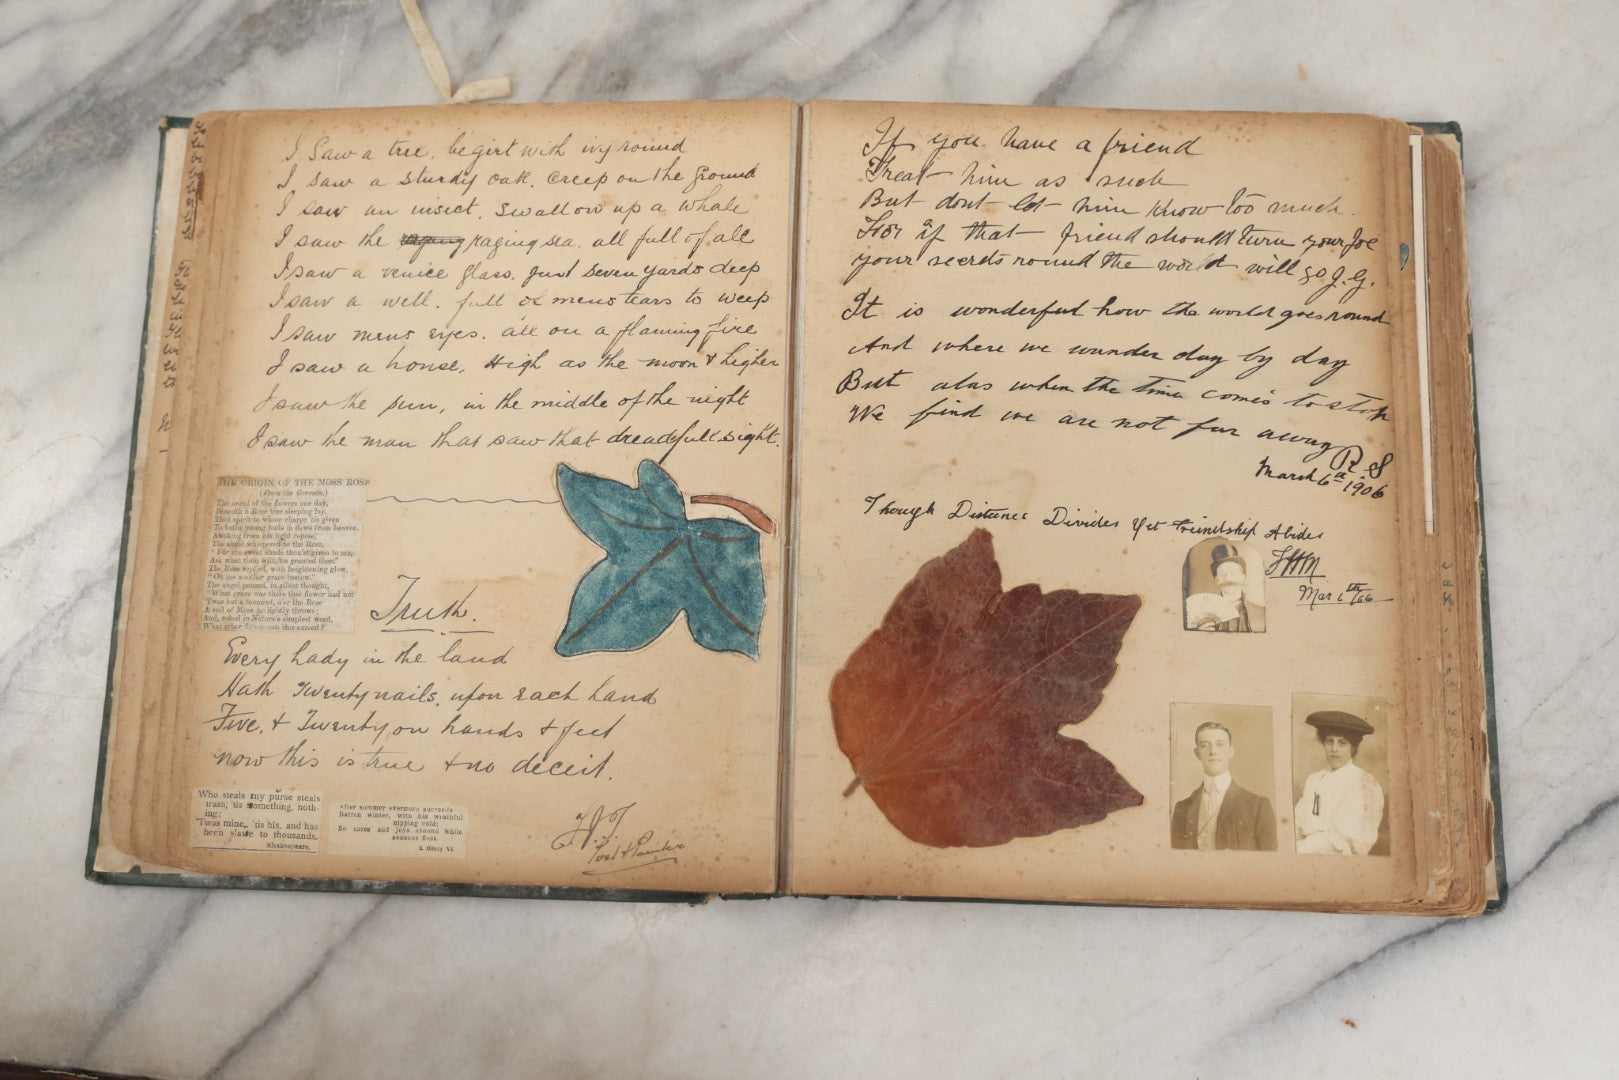 I Saw a tree. begirt with ivy round
I saw a sturdy oak. creep on the Ground
I saw an insect. swallow up a whale
I saw the raging sea. all full of ale
I saw a venice glass. just seven yards deep
I saw a well. full of mens tears to weep
I saw mens eyes. all on a flaming fire
I saw a house. High as the moon & higher
I saw the sun, in the middle of the night
I saw he man that saw that dreadfull sight.
THE ORIGIN OF THE MOSS ROSE
(From the German.)
The angel of the flowers one day,
Beneath a Rose tree sleeping lay,
That spirit to whose charge 'tis given
To bathe young buds in dews from heaven.
Awaking from his light repose,
The angel whispered to the Rose,
"For the sweet shade thou'st given to me,
Ask what thou wilt, 'tis granted thee."
The Rose replied, with heightening glow,
"On me another grace bestow."
The angel paused, in silent thought,
"What grace was there that flower had not
'Twas but a moment, o'er the Rose
A veil of Moss he lightly throws;
And, robed in Nature's simplest weed,
What other flower can this exceed?
Truth.
Every Lady in the land
Hath Twenty nails, upon each hand
Five, & Twenty on hands & feet
now this is true & no deceit.
Who steals my purse steals
trash, 'tis something, noth-
ing;
'Twas mine, 'tis his, and has
been slave to thousands.
Shakespeare.
After summer evermore succeeds
Barren winter, with his wrathful
nipping cold;
So cares and joys abound while
seasons fleet.
2. Henry VI.
Poet & Painter
If you have a friend
Treat him as such
But dont let him know too much.
For if that friend should turn your foe
your secrets round the world will go J.G.
It is wonderful how the world goes round
And where we wander day by day
But alas when the time comes to stop
We find we are not far away
R. S
March 6th 1906
Though Distance Divides Yet Friendship Abides
Mar 6th/06